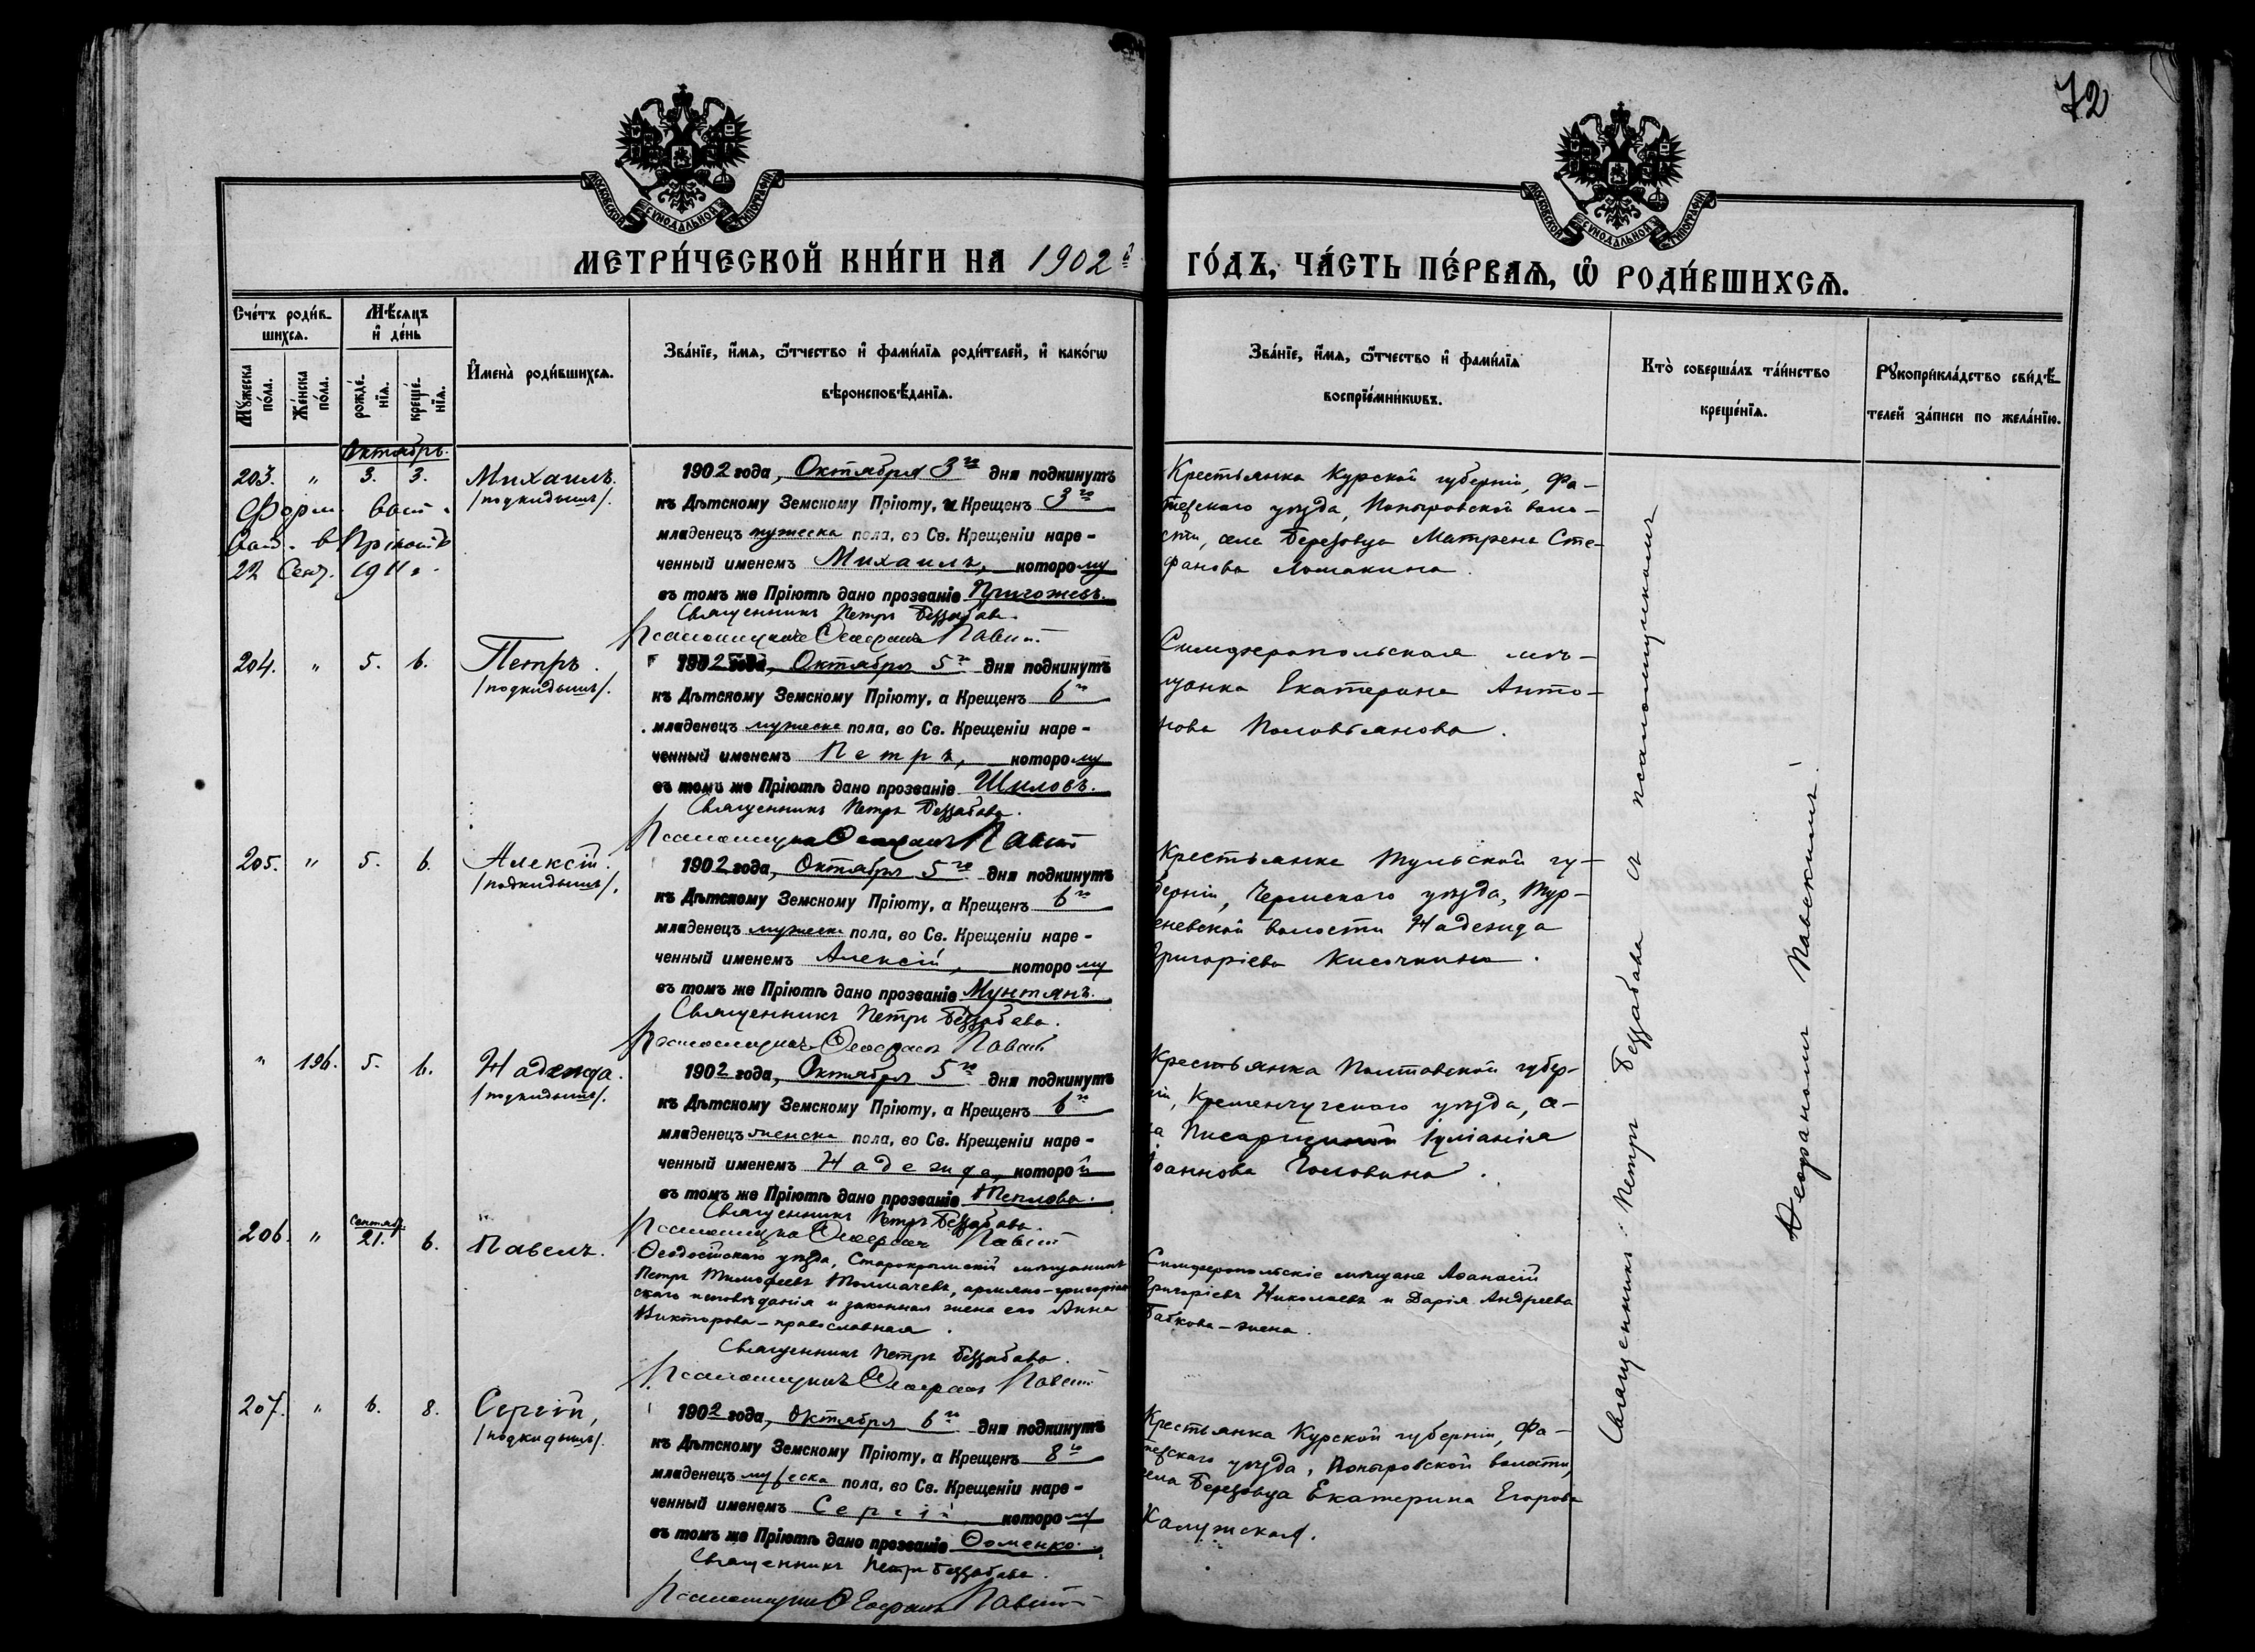 72
МОСКОВСКОЙ СѴНОДАЛЬНОЙ ТИПОГРАФІИ
МОСКОВСКОЙ СѴНОДАЛЬНОЙ ТИПОГРАФІИ
МЕТРИ́ЧЕСКОЙ КНИ́ГИ НА 1902й
ГО́ДЪ, ЧА́СТЬ ПЕ́РВАѦ, Ѿ РОДИ́ВШИХСѦ.
Сче́тъ роди́в-
шихсѧ.
Мꙋ́жеска
по́ла.
Же́нска
по́ла.
Мѣ́сѧцъ
и҆ де́нь
рожде́-
нїѧ.
креще́-
нїѧ.
И҆мена̀ роди́вшихсѧ.
Зва́нїе, и҆́мѧ, ѻ҆́тчество и҆ фами́лїѧ роди́телей, и҆ како́гѡ
вѣроисповѣ́данїѧ.
Зва́нїе, и҆́мѧ, ѻ҆́тчество и҆ фами́лїѧ
воспрїе́мникѡвъ.
Кто̀ соверша́лъ та́инство
креще́нїѧ.
Рꙋкоприкла́дство свидѣ́-
телей за́писи по жела́нїю.
Октябрь.
203. " 3. 3. Михаилъ.
/подкидышъ/.
22 Сент. 1911 г.
1902 года, Октября 3го дня подкинутъ
къ Дѣтскому Земскому Пріюту, и Крещенъ 3го
младенецъ мужеска пола, во Св. Крещеніи наре-
ченный именемъ Михаилъ, которому
въ томъ же Пріютѣ дано прозваніе Пригожевъ.
Священникъ Петръ Беззабава.
Псаломщикъ Ѳеофанъ Павск
Крестьянка Курской губерніи, Фа-
тежскаго уѣзда, Поныровской воло-
сти, села Березовца Матрена Сте-
фанова Ломакина.
204. " 5. 6. Петръ.
/подкидышъ/.
1902 года, Октября 5го дня подкинутъ
къ Дѣтскому Земскому Пріюту, а Крещенъ 6го
младенецъ мужеска пола, во Св. Крещеніи наре-
ченный именемъ Петръ, которому
въ томъ же Пріютѣ дано прозваніе Шиловъ.
Священникъ Петръ Беззабава.
Псаломщикъ Ѳеофанъ Павск
Симферопольская мѣ-
щанка Екатерина Анто-
нова Половьянова.
205. " 5. 6. Алексій.
/подкидышъ/.
1902 года, Октября 5го дня подкинутъ
къ Дѣтскому Земскому Пріюту, а Крещенъ 6го
младенецъ мужеска пола, во Св. Крещеніи наре-
ченный именемъ Алексій, которому
въ томъ же Пріютѣ дано прозваніе Мунтянъ.
Священникъ Петръ Беззабава.
Псаломщикъ Ѳеофанъ Павск
Крестьянка Тульской гу-
берніи, Чернскаго уѣзда, Тур-
еневской волости Надежда
Григоріева Кисочкина.
" 196. 5. 6. Надежда.
/подкидышъ/.
1902 года, Октября 5го дня подкинутъ
къ Дѣтскому Земскому Пріюту, а Крещенъ 6го
младенецъ женска пола, во Св. Крещеніи наре-
ченный именемъ Надежда, которой
въ томъ же Пріютѣ дано прозваніе Теплова.
Священникъ Петръ Беззабава.
Псаломщикъ Ѳеофанъ Павск
Крестьянка Полтавской губер-
ніи, Кременчугскаго уѣзда, се-
ла Писарщины Іуліанія
Іоаннова Головина.
206. " Сентяб. 21. 6. Павелъ.
Ѳеодосійскаго уѣзда, Старокрымскій мѣщанинъ
Петръ Тимофеевъ Толмачевъ, армяно-григоріан
скаго исповѣданія и законная жена его Анна
Викторова - православная.
Священникъ Петръ Беззабава.
Псаломщикъ Ѳеофанъ Павск
Симферопольскіе мѣщане Аѳанасій
Григоріевъ Николаевъ и Дарія Андреева
Бабкова - жена.
207. " 6. 8. Сергій,
/подкидышъ/.
1902 года, Октября 6го дня подкинутъ
къ Дѣтскому Земскому Пріюту, а Крещенъ 8го
младенецъ мужеска пола, во Св. Крещеніи наре-
ченный именемъ Сергій, которому
въ томъ же Пріютѣ дано прозваніе Ѳоменко.
Священникъ Петръ Беззабава.
Псаломщикъ Ѳеофанъ Павск
Крестьянка Курской губерніи, Фа-
тежскаго уѣзда, Поныровской волости,
села Березовца Екатерина Егорова
Калужская.
Священникъ Петръ Беззабава съ псаломщикомъ
Ѳеофаномъ Павскимъ.